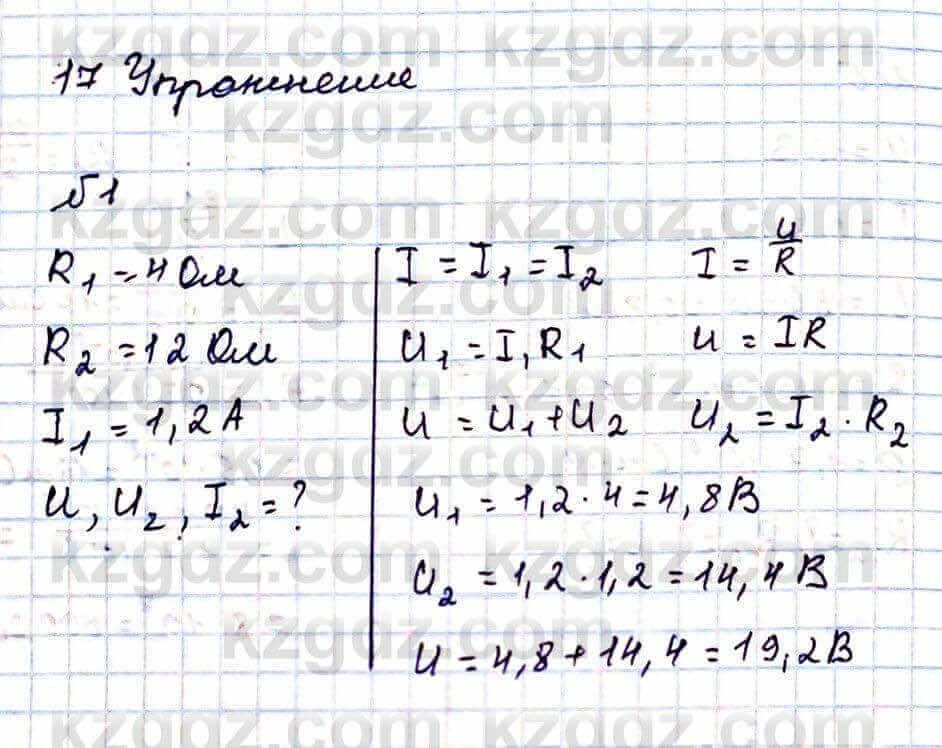 17 Упражнение
№1
R₁ = 4 Ом
R₂ = 12 Ом
I₁ = 1,2 А
U, U₂, I₂ = ?
I = I₁ = I₂ I = U/R
U₁ = I₁R₁ U = IR
U = U₁ + U₂ U₂ = I₂ · R₂
U₁ = 1,2 · 4 = 4,8 В
U₂ = 1,2 · 1,2 = 14,4 В
U = 4,8 + 14,4 = 19,2 В
kzgdz.com